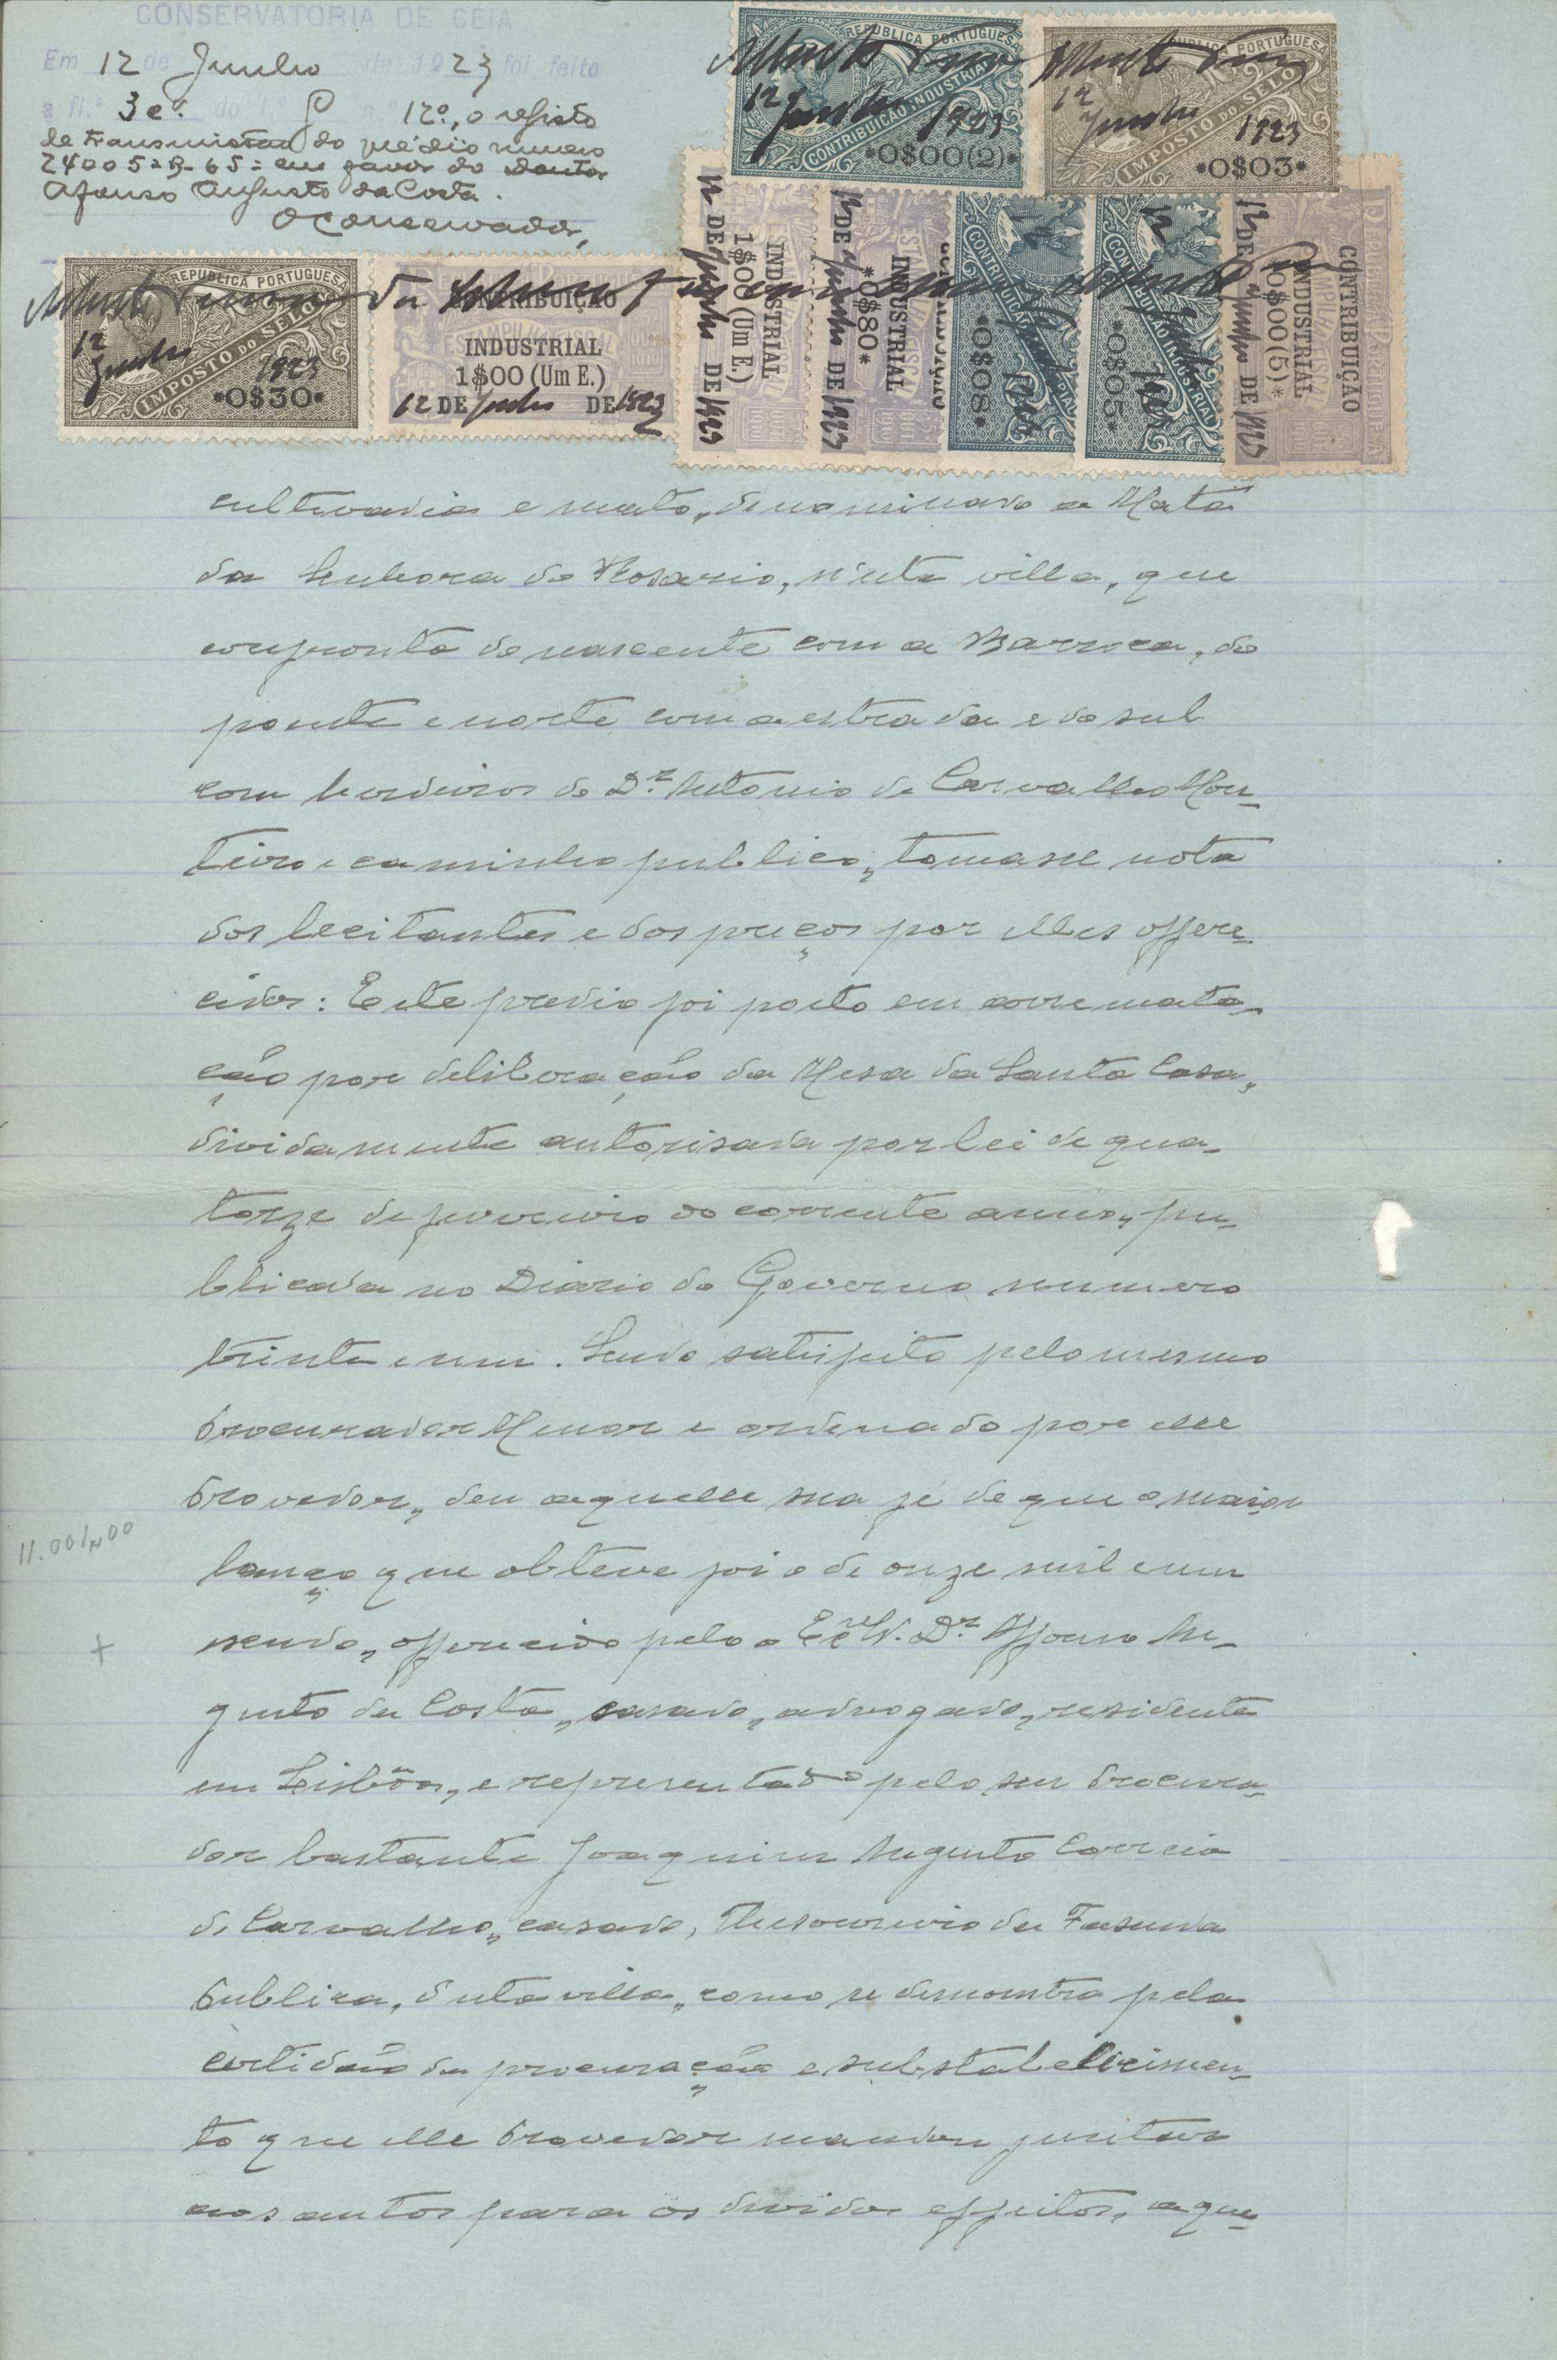 CONSERVATORIA DE CEIA
Em 12 de Junho de 1923 foi feito
a fl.ˢ 3 e.º do Lº G nº 12º, o registo
de transmissão do predio numero
24005 a B-65= em favor do doutor
Afonso Augusto da Costa.
O Conservador,
REPUBLICA PORTUGUESA
CONTRIBUIÇÃO INDUSTRIAL
12 Junho 1923
*0$00(2)*
REPUBLICA PORTUGUESA
IMPOSTO DO SELO
12 Junho 1923
*0$03*
REPUBLICA PORTUGUESA
IMPOSTO DO SELO
12 Junho 1923
*0$30*
CONTRIBUIÇÃO
INDUSTRIAL
1$00 (Um E.)
12 DE Junho DE 1923
INDUSTRIAL
1$00 (Um E.)
12 DE Junho DE 1923
INDUSTRIAL
*0$80*
12 DE Junho DE 1923
CONTRIBUIÇÃO INDUSTRIAL
*0$08*
CONTRIBUIÇÃO INDUSTRIAL
*0$05*
CONTRIBUIÇÃO
INDUSTRIAL
*0$00(5)*
12 DE Junho DE 1923
cultivadia e mato, denominado a Mata
da Senhora do Rosario, n'esta villa, que
confronta do nascente com a Barroca, do
poente e norte com a estrada e do sul
com herdeiros do D.r Antonio de Carvalho Mon-
teiro e caminho publico, tomasse nota
dos licitantes e dos preços por elles offere-
cidos: Este predio foi posto em arremata-
ção por deliberação da Mesa da Santa Casa,
dividamente autorisada por lei de qua-
torze de fevereiro do corrente anno, pu-
blicada no Diario do Governo numero
trinta e um. Sendo satisfeito pelo mesmo
Procurador Menor e ordenado por elle
Provedor, deu aquelle sua fé de que o maior
lanço que obteve foi o de onze mil e um
11.001$00
escudo, offerecido pelo o Ex.mo D.r Affonso Au-
gusto da Costa, casado, advogado, residente
em Lisbôa, e representado pelo seu Procura-
dor bastante Joaquim Augusto Correia
de Carvalho, casado, Thesoureiro da Fasenda
Publica, d'esta villa, como se demonstra pela
certidão da procuração e substabelecimen-
to que elle Provedor mandou juntar
aos autos para os dividos effeitos, a que